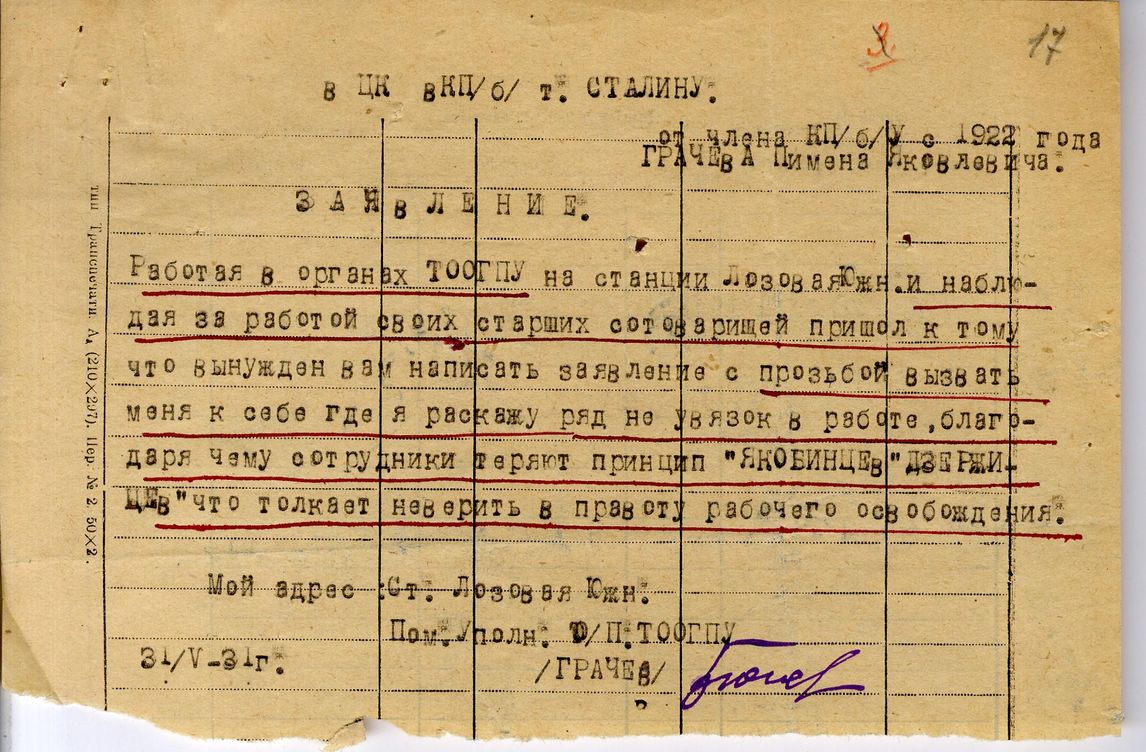 3
17
в ЦК вКП/б/ т. СТАЛИНУ.
от члена КП/б/У с 1922 года
ГРАЧЕвА Пимена Яковлевича.
ЗАЯвЛЕНИЕ.
Работая в органах ТООГПУ на станции ЛозоваяЮжн.и наблю-
дая за работой своих старших сотоварищей пришол к тому
что вынужден вам написать заявление с прозьбой вызвать
меня к себе где я раскажу ряд не увязок в работе,благо-
даря чему сотрудники теряют принцип "ЯКОБИНЦЕв"ДЗЕРЖИ-
ЦЕв"что толкает неверить в правоту рабочего освобождения.
Мой адрес :Ст. Лозовая Южн.
Пом.Уполн. О/П.ТООГПУ
31/V-31г. /ГРАЧЕв/
тип Транспечати А, (210×297). Пер. № 2. 50×2.